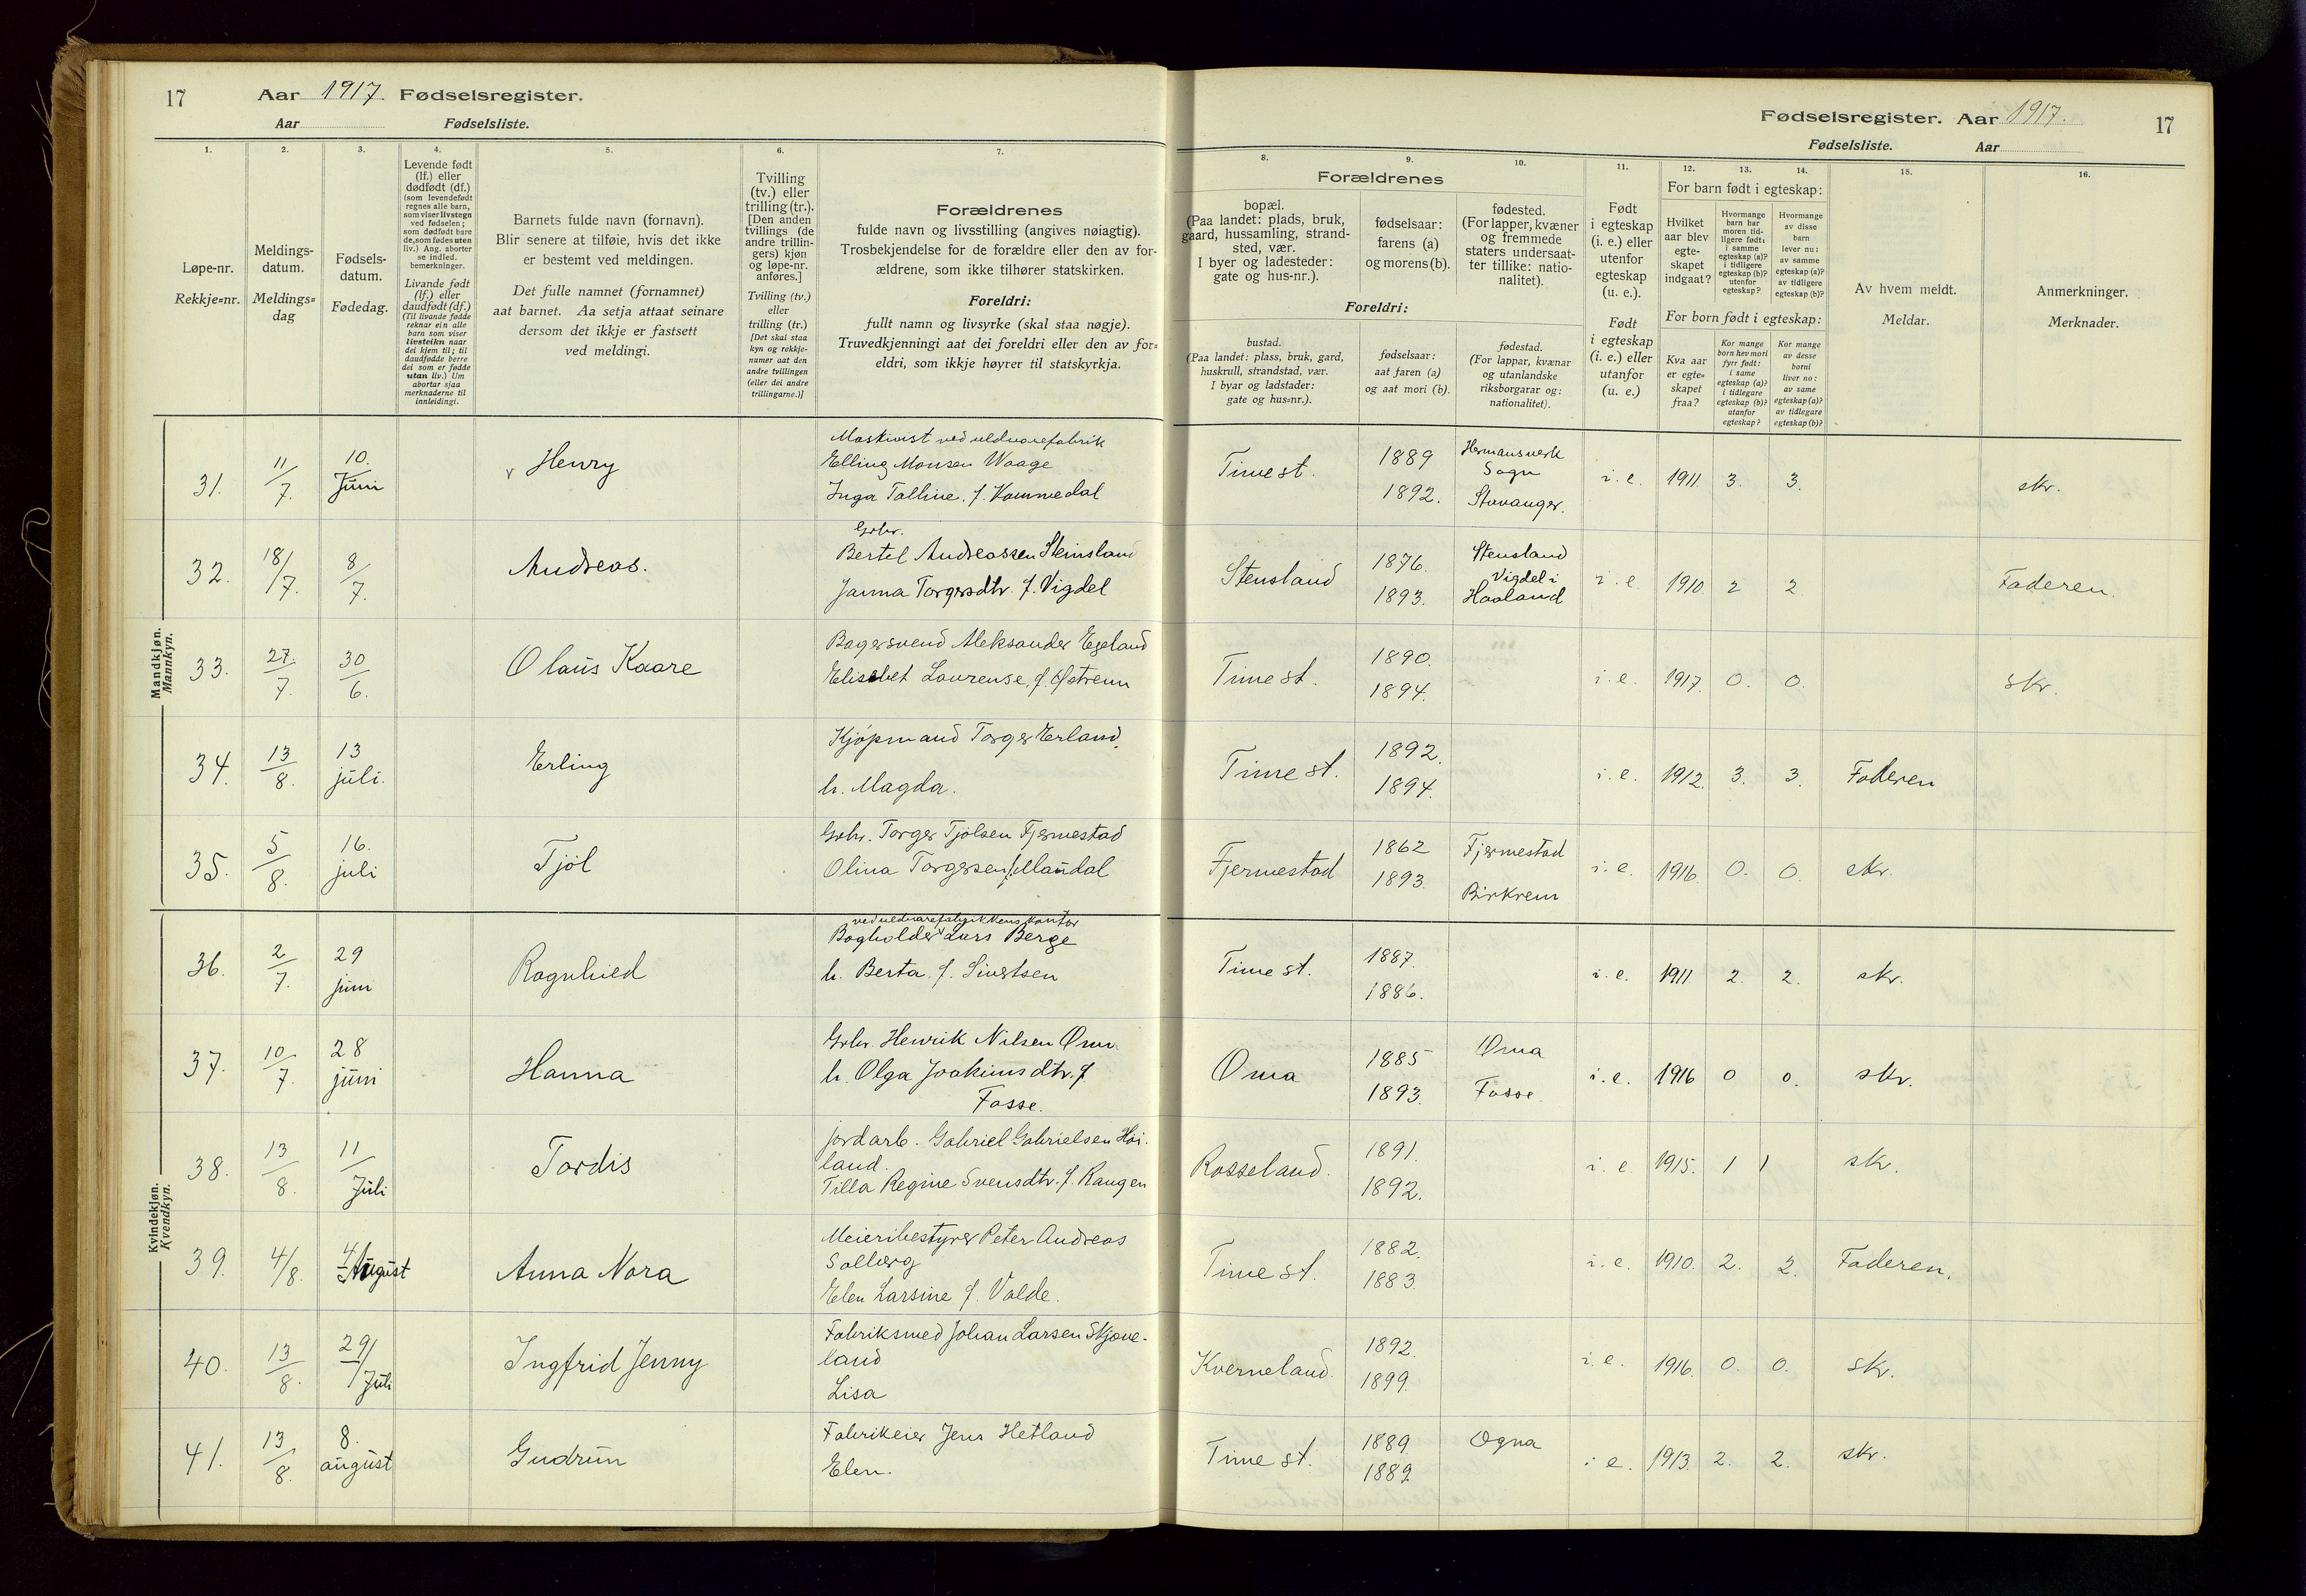 17 Aar 1917. Fødselsregister.
Aar Fødselsliste.
1. 2. 3. 4. 5. 6. 7.
Løpe-nr.
Rekkje=nr.
Meldings-
datum.
Meldings=
dag
Fødsels-
datum.
Fødedag.
Levende født
(lf.) eller
dødfødt (df.)
(som levendefødt
regnes alle barn,
som viser livstegn
ved fødselen;
som dødfødt bare
de, som fødes uten
liv.) Ang. aborter
se indled.
bemerkninger.
Livande født
(lf.) eller
daudfødt (df.)
(Til livande fødde
reknar ein alle
barn som viser
livsteikn naar
dei kjem til; til
daudfødde berre
dei som er fødde
utan liv.) Um
abortar sjaa
merknaderne til
innleidingi.
Barnets fulde navn (fornavn).
Blir senere at tilføie, hvis det ikke
er bestemt ved meldingen.
Det fulle namnet (fornamnet)
aat barnet. Aa setja attaat seinare
dersom det ikkje er fastsett
ved meldingi.
Tvilling
(tv.) eller
trilling (tr.).
[Den anden
tvillings (de
andre trillin-
gers) kjøn
og løpe-nr.
anføres.]
Tvilling (tv.)
eller
trilling (tr.)
[Det skal staa
kyn og rekkje-
numer aat den
andre tvillingen
(eller dei andre
trillingarne.)]
Forældrenes
fulde navn og livsstilling (angives nøiagtig).
Trosbekjendelse for de forældre eller den av for-
ældrene, som ikke tilhører statskirken.
Foreldri:
fullt namn og livsyrke (skal staa nøgje).
Truvedkjenningi aat dei foreldri eller den av for=
eldri, som ikkje høyrer til statskyrkja.
Fødselsregister. Aar 1917. 17
Fødselsliste. Aar
8. 9. 10. 11. 12. 13. 14. 15. 16.
Forældrenes
bopæl.
(Paa landet: plads, bruk,
gaard, hussamling, strand-
sted, vær.
I byer og ladesteder:
gate og hus-nr.).
fødselsaar:
farens (a)
og morens (b).
fødested.
(For lapper, kvæner
og fremmede
staters undersaat-
ter tillike: natio-
nalitet).
Foreldri:
bustad.
(Paa landet: plass, bruk, gard,
huskrull, strandstad, vær.
I byar og ladstader:
gate og hus=nr.).
fødselsaar:
aat faren (a)
og aat mori (b).
fødestad.
(For lappar, kvænar
og utanlandske
riksborgarar og:
nationalitet).
Født
i egteskap
(i. e.) eller
utenfor
egteskap
(u. e.).
Født
i egteskap
(i. e.) eller
utanfor
(u. e.)
For barn født i egteskap:
Hvilket
aar blev
egte-
skapet
indgaat?
Hvormange
barn har
moren tid-
ligere født:
i samme
egteskap (a)?
i tidligere
egteskap (b)?
utenfor
egteskap?
Hvormange
av disse
barn
lever nu:
av samme
egteskap (a)?
av tidligere
egteskap (b)?
For born født i egteskap:
Kva aar
er egte=
skapet
fraa?
Kor mange
born hev mori
fyrr født:
i same
egteskap (a)?
i tidlegare
egteskap (b)?
utanfor
egteskap?
Kor mange
av desse
borni
liver no:
av same
egteskap (a)?
av tidlegare
egteskap (b)?
Av hvem meldt.
Meldar.
Anmerkninger.
Merknader.
Mandkjøn.
Mannkyn.
31. 11/7. 10. Juni Henry
Maskinist ved uldvarefabrik
Elling Monsen Waage
Inga Talline, f. Kommedal
Time st. 1889 1892. Hermansverk Sogn Stavanger. i. e. 1911. 3. 3. skr.
32. 18/7. 8/7. Andreas.
Grbr.
Bertel Andreassen Steinsland
Janna Torgersdtr. f. Vigdel
Stensland 1876. 1893. Stensland Vigdel i Haaland i. e. 1910. 2 2 Faderen.
33. 27./7. 30/6. Olaus Kaare
Bagersvend Aleksander Egeland
Elisabet Laurense, f. Østrem
Time st. 1890. 1894. i. e. 1917. 0. 0. skr.
34. 13/8. 13 juli. Erling
Kjøpmand Torger Erland.
h. Magda.
Time st. 1892. 1894. i. e. 1912. 3. 3. Faderen
35. 5/8. 16. juli Tjøl
Grbr. Torger Tjølsen Fjermestad
Olina Torgersen f. Mandal
Fjermestad 1862 1893. Fjermestad Birkrem i. e. 1916. 0. 0. skr.
Kvindekjøn.
Kvendkyn.
36. 2/7. 29 juni Ragnhild
ved uldvarefabrikkens kontor
Bogholder Lars Berge
h. Berta f. Sivertsen
Time st. 1887. 1886. i. e. 1911. 2. 2. skr.
37. 10/7. 28 juni Hanna
Grbr. Henrik Nilsen Oma
h. Olga Joakimsdtr. f
Fosse.
Oma 1885 1893. Oma Fosse. i. e. 1916 0 0. skr.
38. 13/8. 11/Juli Tordis
jordarb. Gabriel Gabrielsen Høi-
land.
Tilla Regine Svensdtr. f. Raugen
Rosseland. 1891. 1892. i. e. 1915. 1 1 skr.
39. 4/8. 4/August Anna Nora
Meieribestyrer Peter Andreas
Solberg
Elen Larsine f. Valde.
Time st. 1882. 1883. i. e. 1910. 2. 2. Faderen.
40. 13/8. 29/Juli Ingfrid Jenny
Fabriksmed Johan Larsen Skjæve-
land
Lisa
Kverneland. 1892. 1899. i. e. 1916. 0. 0. skr.
41. 13/8. 8. august Gudrun
Fabrikeier Jens Hetland
Elen.
Time st. 1889. 1889. Ogna i e. 1913. 2. 2. skr.